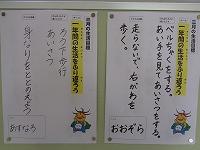 三月の生活目標
一年間の生活をふり返ろう
ベルちゃくをする。
あい手を見てあいさつをする。
走らないで、右がわを
歩く。
おおぞら
三月の生活目標
一年間の生活をふり返ろう
ろう下歩行
あいさつ
身なりをととのえよう
あすなろ